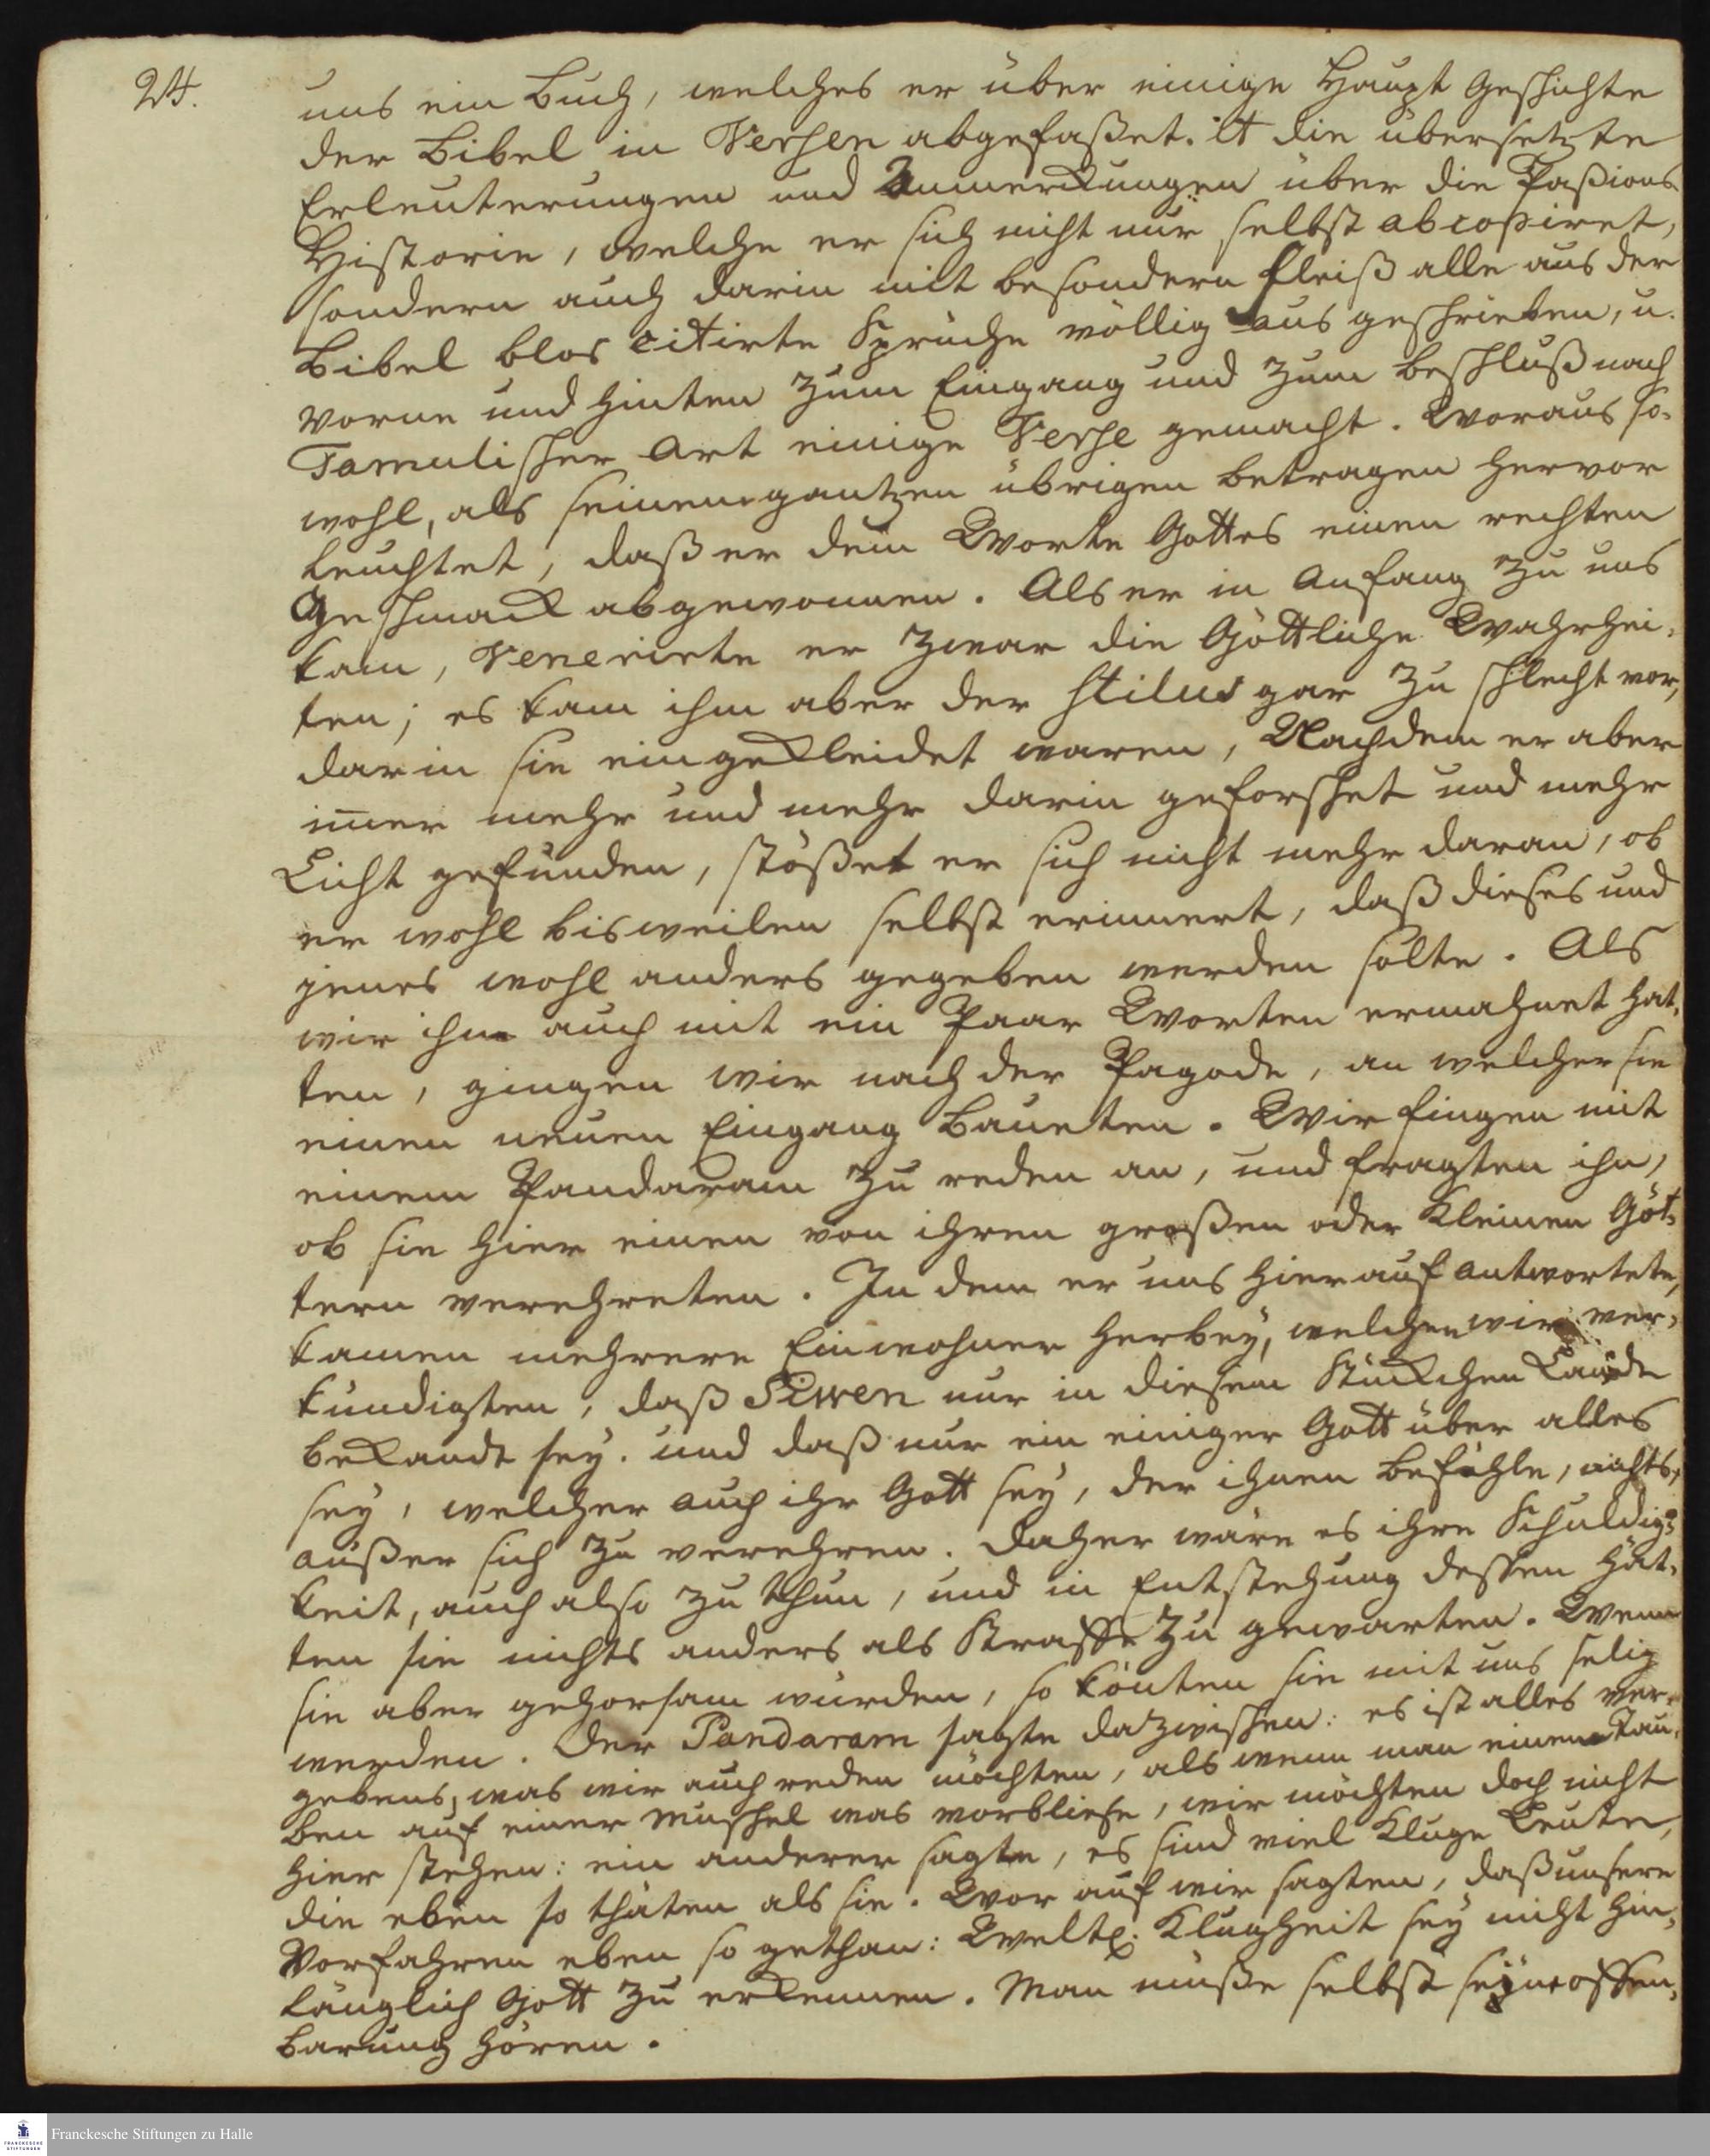 24.
uns ein Buch, welches er über einige Haupt Geschichte
der Bibel in Versen abgefaßet. it die übersetzte
Erleuterungen und Anmerckungen über die Paßions
Historie, welche er sich nicht nur selbst abcopiret,
sondern auch darin mit besondern Fleiß alle aus der
Bibel blos citirte Sprüche völlig aus geschrieben, u.
vorne und hinten zum Eingang und zum Beschluß nach
Tamulischer Art einige Verse gemacht. Woraus so-
wohl, als seinem gantzen übrigen Betragen hervor
leuchtet, daß er dem Worte Gottes einen rechten
Geschmack abgewonnen. Als er in Anfang zu uns
kam, Venerirte er zwar die Göttliche Wahrhei-
ten; es kam ihm aber der Stilus gar zu schlecht vor,
darin sie eingekleidet waren, Nachdem er aber
im̄er mehr und mehr darin geforschet und mehr
Licht gefunden, stößet er sich nicht mehr daran, ob
er wohl bisweilen selbst erinnert, daß dieses und
jenes wohl anders gegeben werden solte. Als
wir ihn auch mit ein Paar Worten ermahnet hat-
ten, gingen wir nach der Pagode, an welcher sie
einen neuen Eingang baueten. Wir fingen mit
einem Pandaram zu reden an, und fragten ihn,
ob sie hier einen von ihren großen oder kleinen Göt-
tern verehreten. In dem er uns hierauf antwortete,
kamen mehrere Einwohner herbey, welchen wir ver-
kündigten, daß Siwen nur in diesem Stückchen Lande
bekandt sey. und daß nur ein einiger Gott über alles
sey, welcher auch ihr Gott sey, der ihnen befehle, nichts,
außer sich zu verehren. Daher wäre es ihre Schuldig-
keit, auch also zu thun, und in Entstehung dessen hät-
ten sie nichts anders als Straffe zu gewarten. Wenn
sie aber gehorsam würden, so könten sie mit uns selig
werden. Der Pandaram sagte dazwischen: es ist alles ver-
gebens, was wir auch reden möchten, als wenn man einem Tau-
ben auf einer Muschel was vorbliese, wir möchten doch nicht
hier stehen: ein anderer sagte, es sind viel kluge Leute,
die eben so thäten als sie. Wor auf wir sagten, daß unsere
Vorfahren eben so gethan: Weltl. Klugheit sey nicht hin-
länglich Gott zu erkennen. Man müße selbst seine offen-
barung hören.
Franckesche Stiftungen zu Halle
FRANCKESCHE
STIFTUNGEN